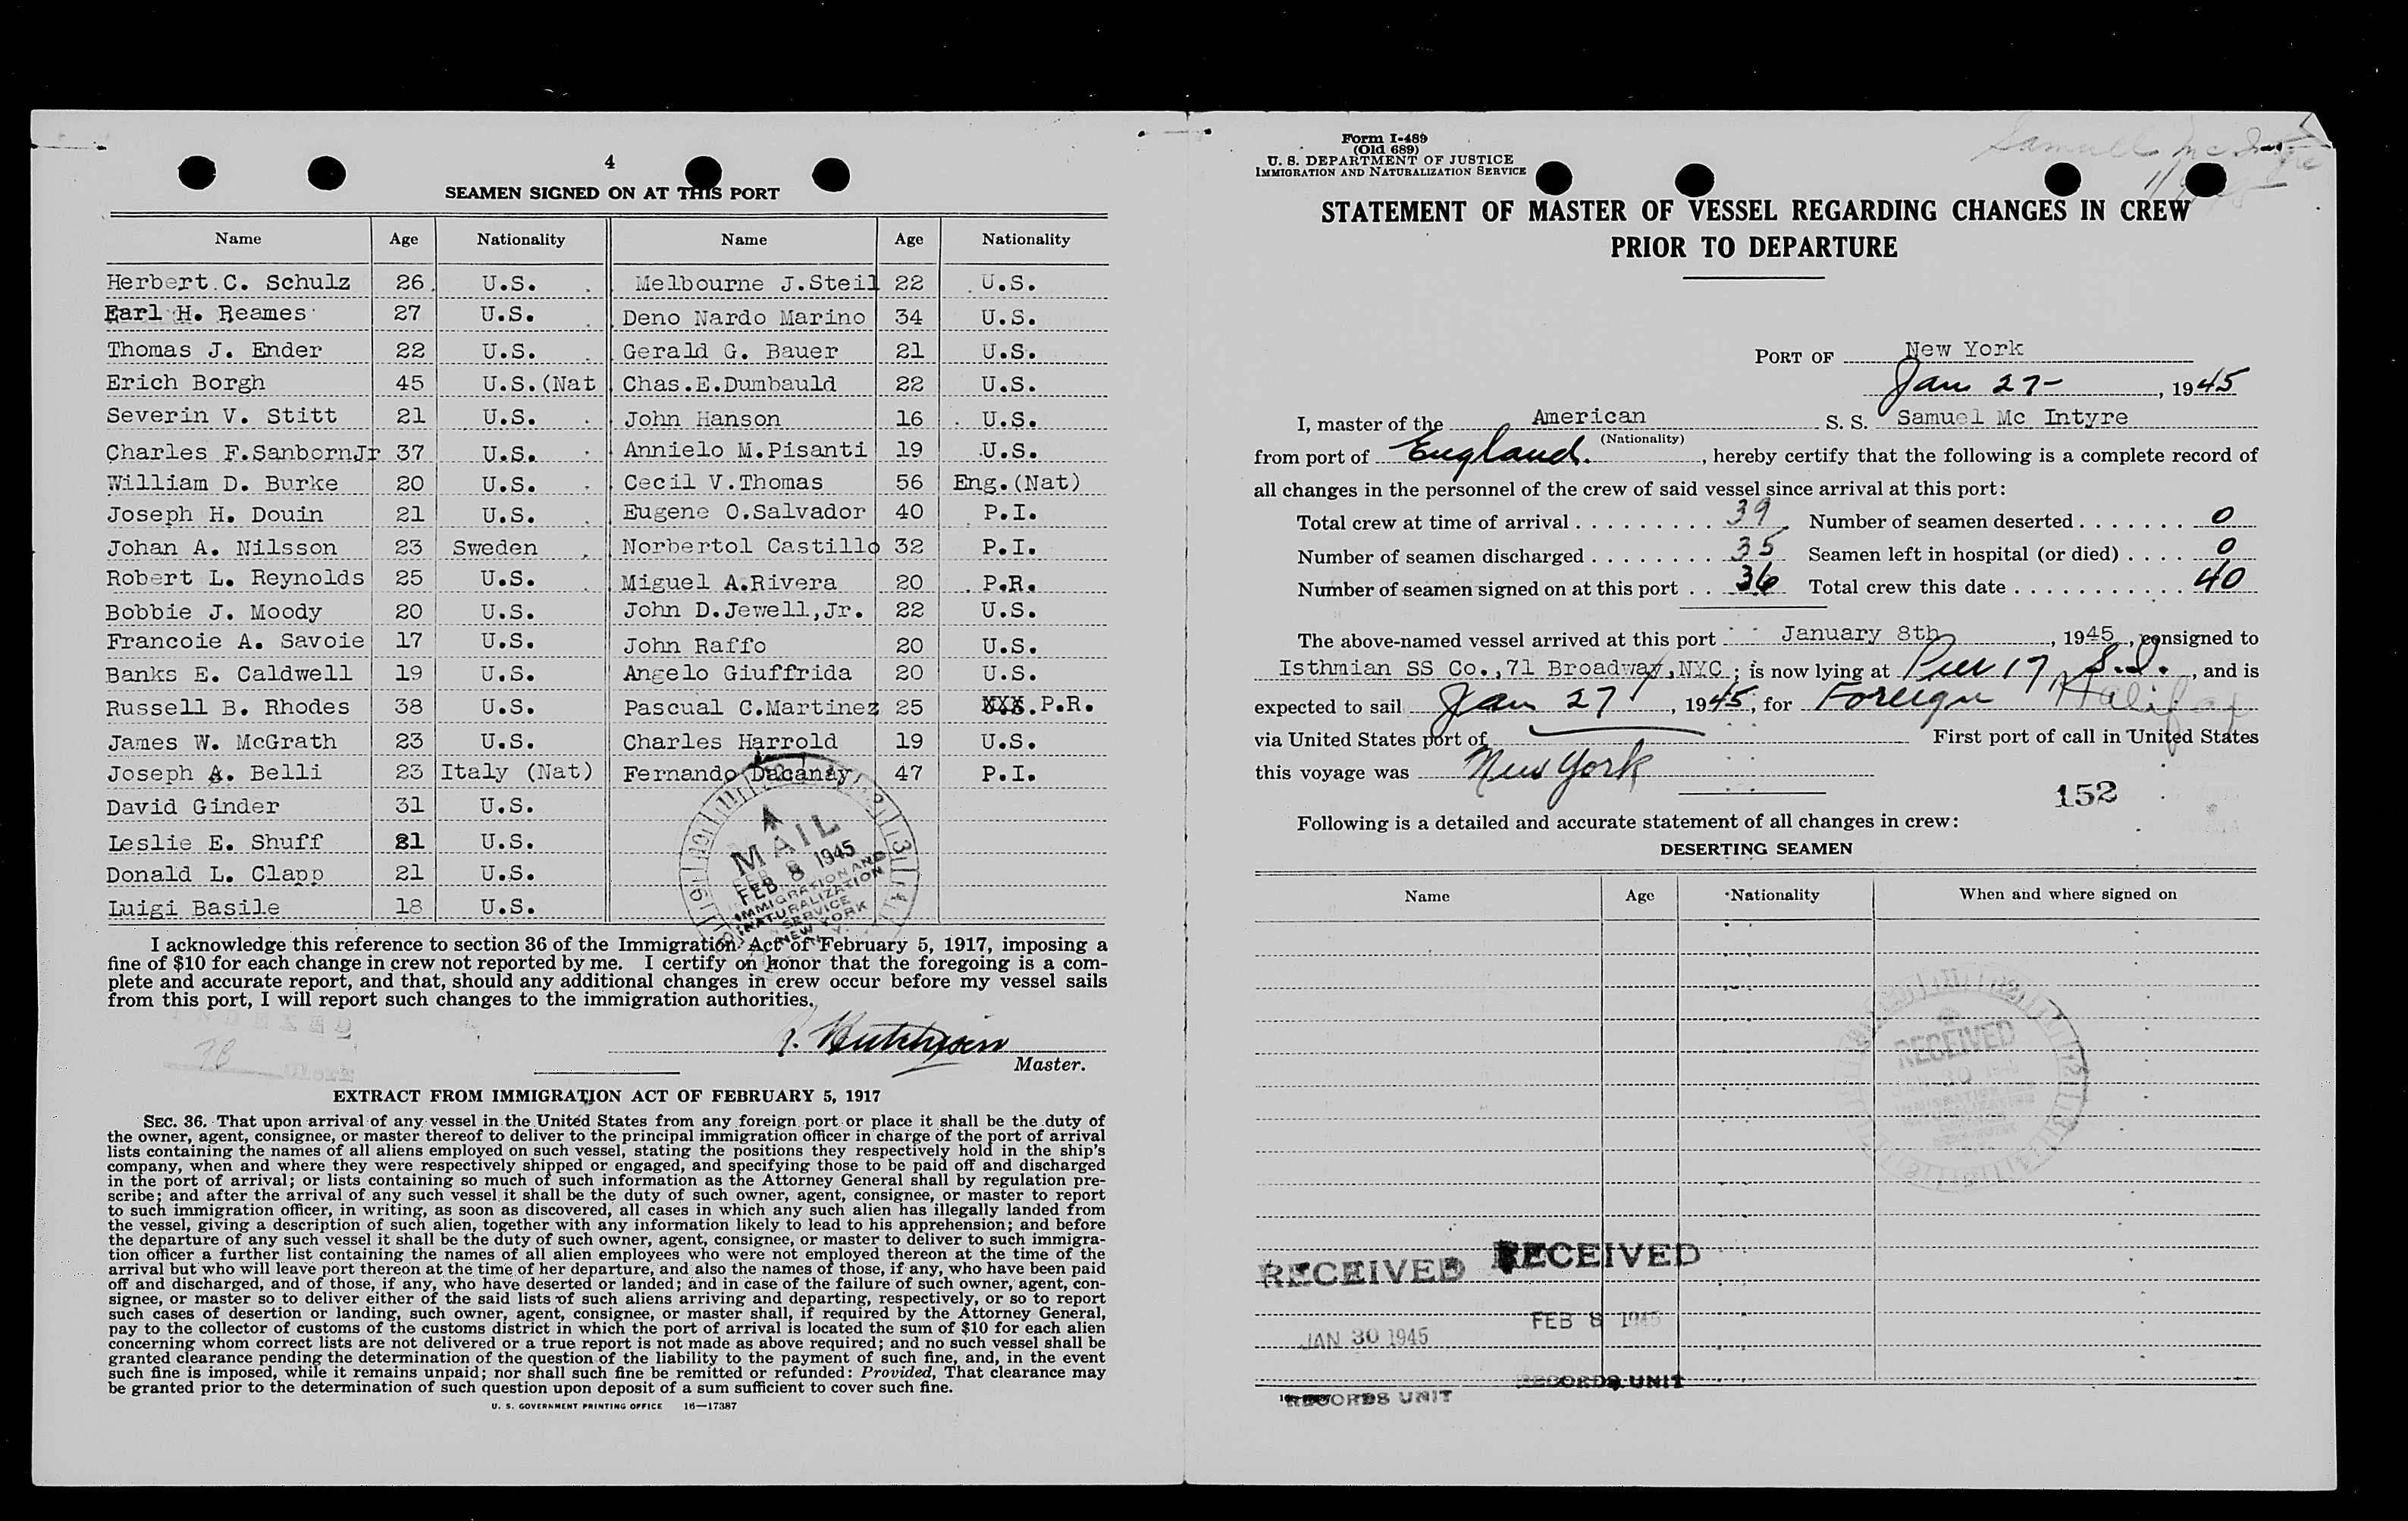 4
SEAMEN SIGNED ON AT THIS PORT
Name Age Nationality Name Age Nationality
Herbert C. Schulz 26 U.S. Melbourne J.Steil 22 U.S.
Earl H. Reames 27 U.S. Deno Nardo Marino 34 U.S.
Thomas J. Ender 22 U.S. Gerald G. Bauer 21 U.S.
Erich Borgh 45 U.S.(Nat Chas.E.Dumbauld 22 U.S.
Severin V. Stitt 21 U.S. John Hanson 16 U.S.
Charles F.SanbornJr 37 U.S. Annielo M.Pisanti 19 U.S.
William D. Burke 20 U.S. Cecil V.Thomas 56 Eng.(Nat)
Joseph H. Douin 21 U.S. Eugene O.Salvador 40 P.I.
Johan A. Nilsson 23 Sweden Norbertol Castillo 32 P.I.
Robert L. Reynolds 25 U.S. Miguel A.Rivera 20 P.R.
Bobbie J. Moody 20 U.S. John D.Jewell,Jr. 22 U.S.
Francoie A. Savoie 17 U.S. John Raffo 20 U.S.
Banks E. Caldwell 19 U.S. Angelo Giuffrida 20 U.S.
Russell B. Rhodes 38 U.S. Pascual C.Martinez 25 P.R.
James W. McGrath 23 U.S. Charles Harrold 19 U.S.
Joseph A. Belli 23 Italy (Nat) Fernando Dacanay 47 P.I.
David Ginder 31 U.S.
Leslie E. Shuff 21 U.S.
Donald L. Clapp 21 U.S.
Luigi Basile 18 U.S.
MAIL
FEB 8 1945
IMMIGRATION AND
NATURALIZATION
SERVICE
NEW YORK
I acknowledge this reference to section 36 of the Immigration Act of February 5, 1917, imposing a
fine of $10 for each change in crew not reported by me. I certify on honor that the foregoing is a com-
plete and accurate report, and that, should any additional changes in crew occur before my vessel sails
from this port, I will report such changes to the immigration authorities.
Master.
EXTRACT FROM IMMIGRATION ACT OF FEBRUARY 5, 1917
SEC. 36. That upon arrival of any vessel in the United States from any foreign port or place it shall be the duty of
the owner, agent, consignee, or master thereof to deliver to the principal immigration officer in charge of the port of arrival
lists containing the names of all aliens employed on such vessel, stating the positions they respectively hold in the ship's
company, when and where they were respectively shipped or engaged, and specifying those to be paid off and discharged
in the port of arrival; or lists containing so much of such information as the Attorney General shall by regulation pre-
scribe; and after the arrival of any such vessel it shall be the duty of such owner, agent, consignee, or master to report
to such immigration officer, in writing, as soon as discovered, all cases in which any such alien has illegally landed from
the vessel, giving a description of such alien, together with any information likely to lead to his apprehension; and before
the departure of any such vessel it shall be the duty of such owner, agent, consignee, or master to deliver to such immigra-
tion officer a further list containing the names of all alien employees who were not employed thereon at the time of the
arrival but who will leave port thereon at the time of her departure, and also the names of those, if any, who have been paid
off and discharged, and of those, if any, who have deserted or landed; and in case of the failure of such owner, agent, con-
signee, or master so to deliver either of the said lists of such aliens arriving and departing, respectively, or so to report
such cases of desertion or landing, such owner, agent, consignee, or master shall, if required by the Attorney General,
pay to the collector of customs of the customs district in which the port of arrival is located the sum of $10 for each alien
concerning whom correct lists are not delivered or a true report is not made as above required; and no such vessel shall be
granted clearance pending the determination of the question of the liability to the payment of such fine, and, in the event
such fine is imposed, while it remains unpaid; nor shall such fine be remitted or refunded: Provided, That clearance may
be granted prior to the determination of such question upon deposit of a sum sufficient to cover such fine.
U. S. GOVERNMENT PRINTING OFFICE 16—17387
Form I-489
(Old 689)
U. S. DEPARTMENT OF JUSTICE
IMMIGRATION AND NATURALIZATION SERVICE
Samuel McIntyre
STATEMENT OF MASTER OF VESSEL REGARDING CHANGES IN CREW
PRIOR TO DEPARTURE
PORT OF New York
Jan 27- , 1945
I, master of the American S. S. Samuel Mc Intyre
(Nationality)
from port of England. , hereby certify that the following is a complete record of
all changes in the personnel of the crew of said vessel since arrival at this port:
Total crew at time of arrival 39 Number of seamen deserted 0
Number of seamen discharged 35 Seamen left in hospital (or died) 0
Number of seamen signed on at this port 36 Total crew this date 40
The above-named vessel arrived at this port January 8th , 1945, consigned to
Isthmian SS Co.,71 Broadway,NYC ; is now lying at Pier 17, S.I. , and is
expected to sail Jan 27 , 1945, for Foreign Halifax
via United States port of First port of call in United States
this voyage was New York
152
Following is a detailed and accurate statement of all changes in crew:
DESERTING SEAMEN
Name Age Nationality When and where signed on
RECEIVED
JAN 30
RECEIVED RECEIVED
JAN 30 1945 FEB 8 1945
RECORDS UNIT RECORDS UNIT